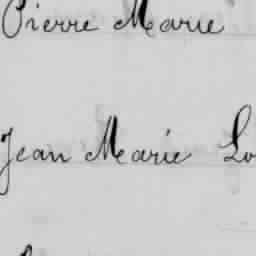 Pierre Marie
Jean Marie Lo